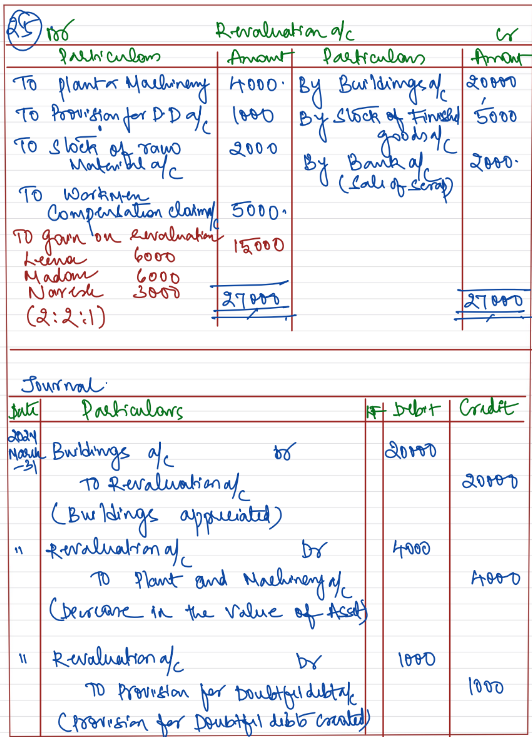 25 Dr Revaluation a/c Cr
Particulars Amount Particulars Amount
To Plant & Machinery 4000. By Buildings a/c 20000
To Provision for D D a/c 1000 By Stock of Finished goods a/c 5000
To Stock of raw Material a/c 2000 By Bank a/c (Sale of scrap) 2000.
To Workmen
Compensation claim a/c 5000.
To gain on revaluation 15000
Leena 6000
Madan 6000
Naresh 3000 27000 27000
(2:2:1)
Journal.
Date Particulars LF Debit Credit
2024 March -31 Buildings a/c Dr 20000
To Revaluation a/c 20000
(Buildings appreciated)
" Revaluation a/c Dr 4000
To Plant and Machinery a/c 4000
(Decrease in the value of Asset)
" Revaluation a/c Dr 1000
To Provision for Doubtful debt a/c 1000
(Provision for Doubtful debts created)